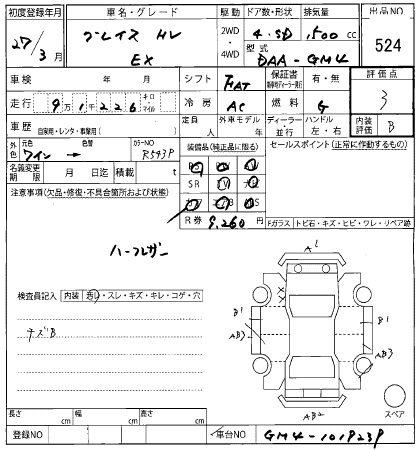 初度登録年月 車名・グレード 駆動 ドア数・形状 排気量 出品NO
27/3月 グレイス HV EX 2WD・4WD 4・SD 1,500 cc 524
型式 DAA-GM4
車検 年 月 シフト FAT 保証書 有・無 評価点
走行 9万1千226 キロ・マイル 冷房 AC 燃料 G 3
車歴 自家用・レンタ・事業用( ) 定員 人 外車モデル 年 ディーラー・並行 ハンドル 左・右 内装評価 B
外色 元色 ワイン → 色替 カラーNO R543P 装備品(純正品に限る) セールスポイント(正常に作動するもの)
名義変更期限 月 日迄 積載 t SR
注意事項(欠品・修復・不具合箇所および状態)
R券 9,260
Fガラス トビ石・キズ・ヒビ・ワレ・リペア跡
ハーフレザー
A1
検査員記入 内装 悪い・スレ・キズ・キレ・コゲ・穴
チズB
B1 B1
AB3 AB3
AB2
スペア
長さ cm 幅 cm 高さ cm
登録NO 車台NO GM4-